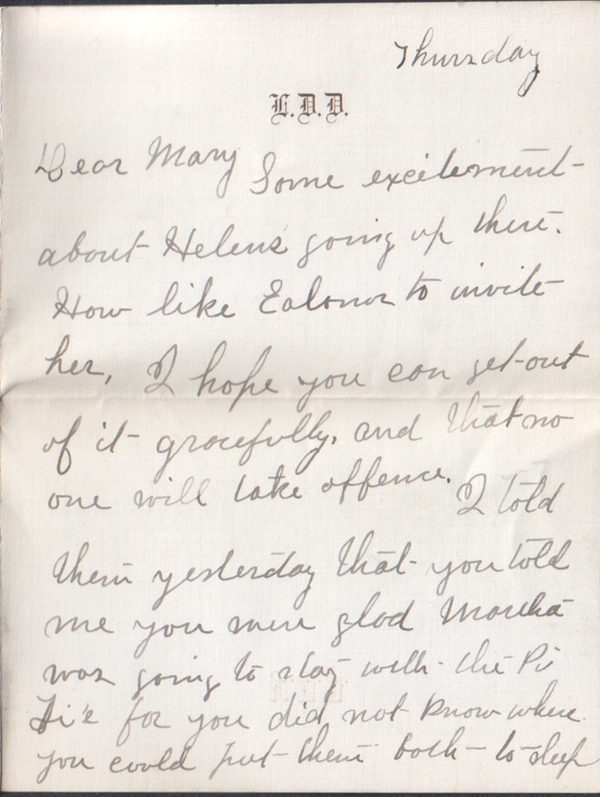 Thursday
L.D.D.
Dear Mary Some excitement
about Helens going up there.
How like Ealonor to invite
her, I hope you can get out
of it gracefully, and that no
one will take offence. I told
them yesterday that you told
me you were glad Martha
was going to stay with the Pi
Fi's for you did not know where
you could put them both to sleep